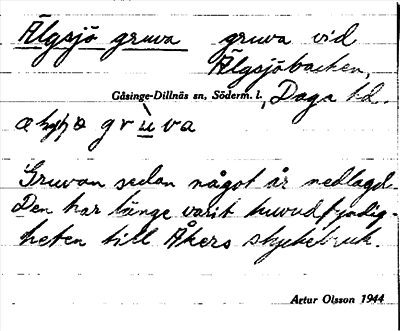 Älgsjö gruva gruva vid
Älgsjöbacken,
Gåsinge-Dillnäs sn, Söderm. l., Daga hd.
grùva
Gruvan sedan något år nedlagd.
Den har länge varit huvudfyndig-
heten till Åkers styckebruk.
Artur Olsson 1944